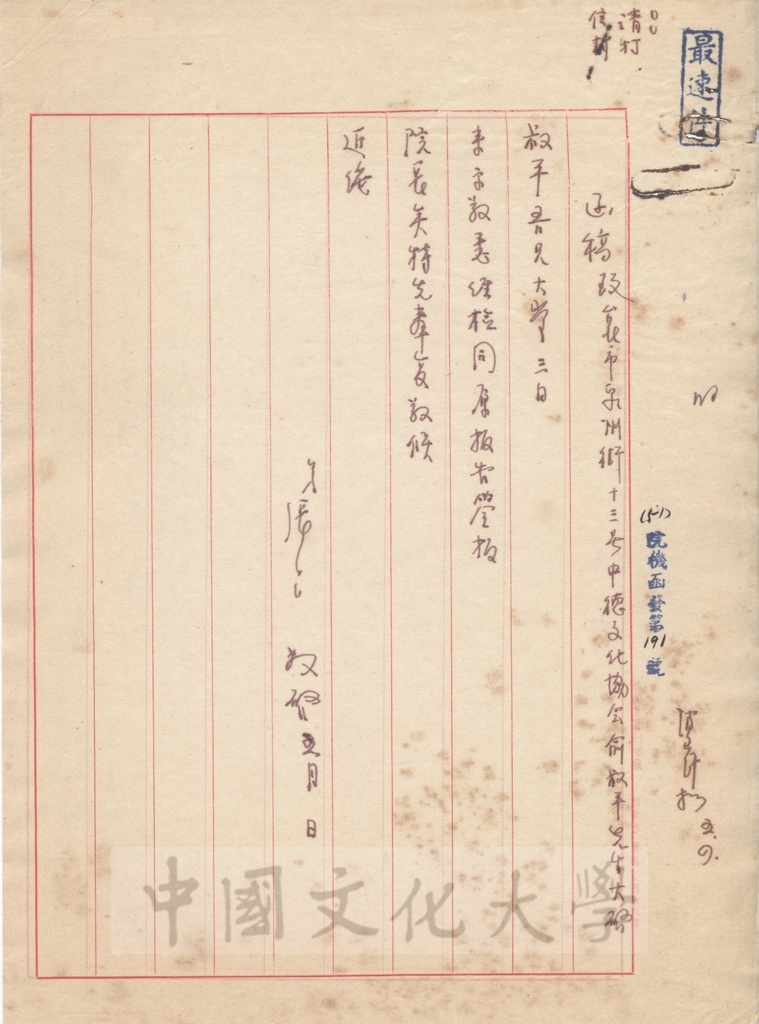 最速件
請打
信封
(51)院機函發第191號
函稿致 市泉州街十三号中德文化協会俞叔平先生大啓
叔平吾兄大鑒三日
来示敬悉經檢同原报告簽报
院長矣特先奉复敬候
近綏
弟張
敬啓五月 日
五.9.
中國文化大學